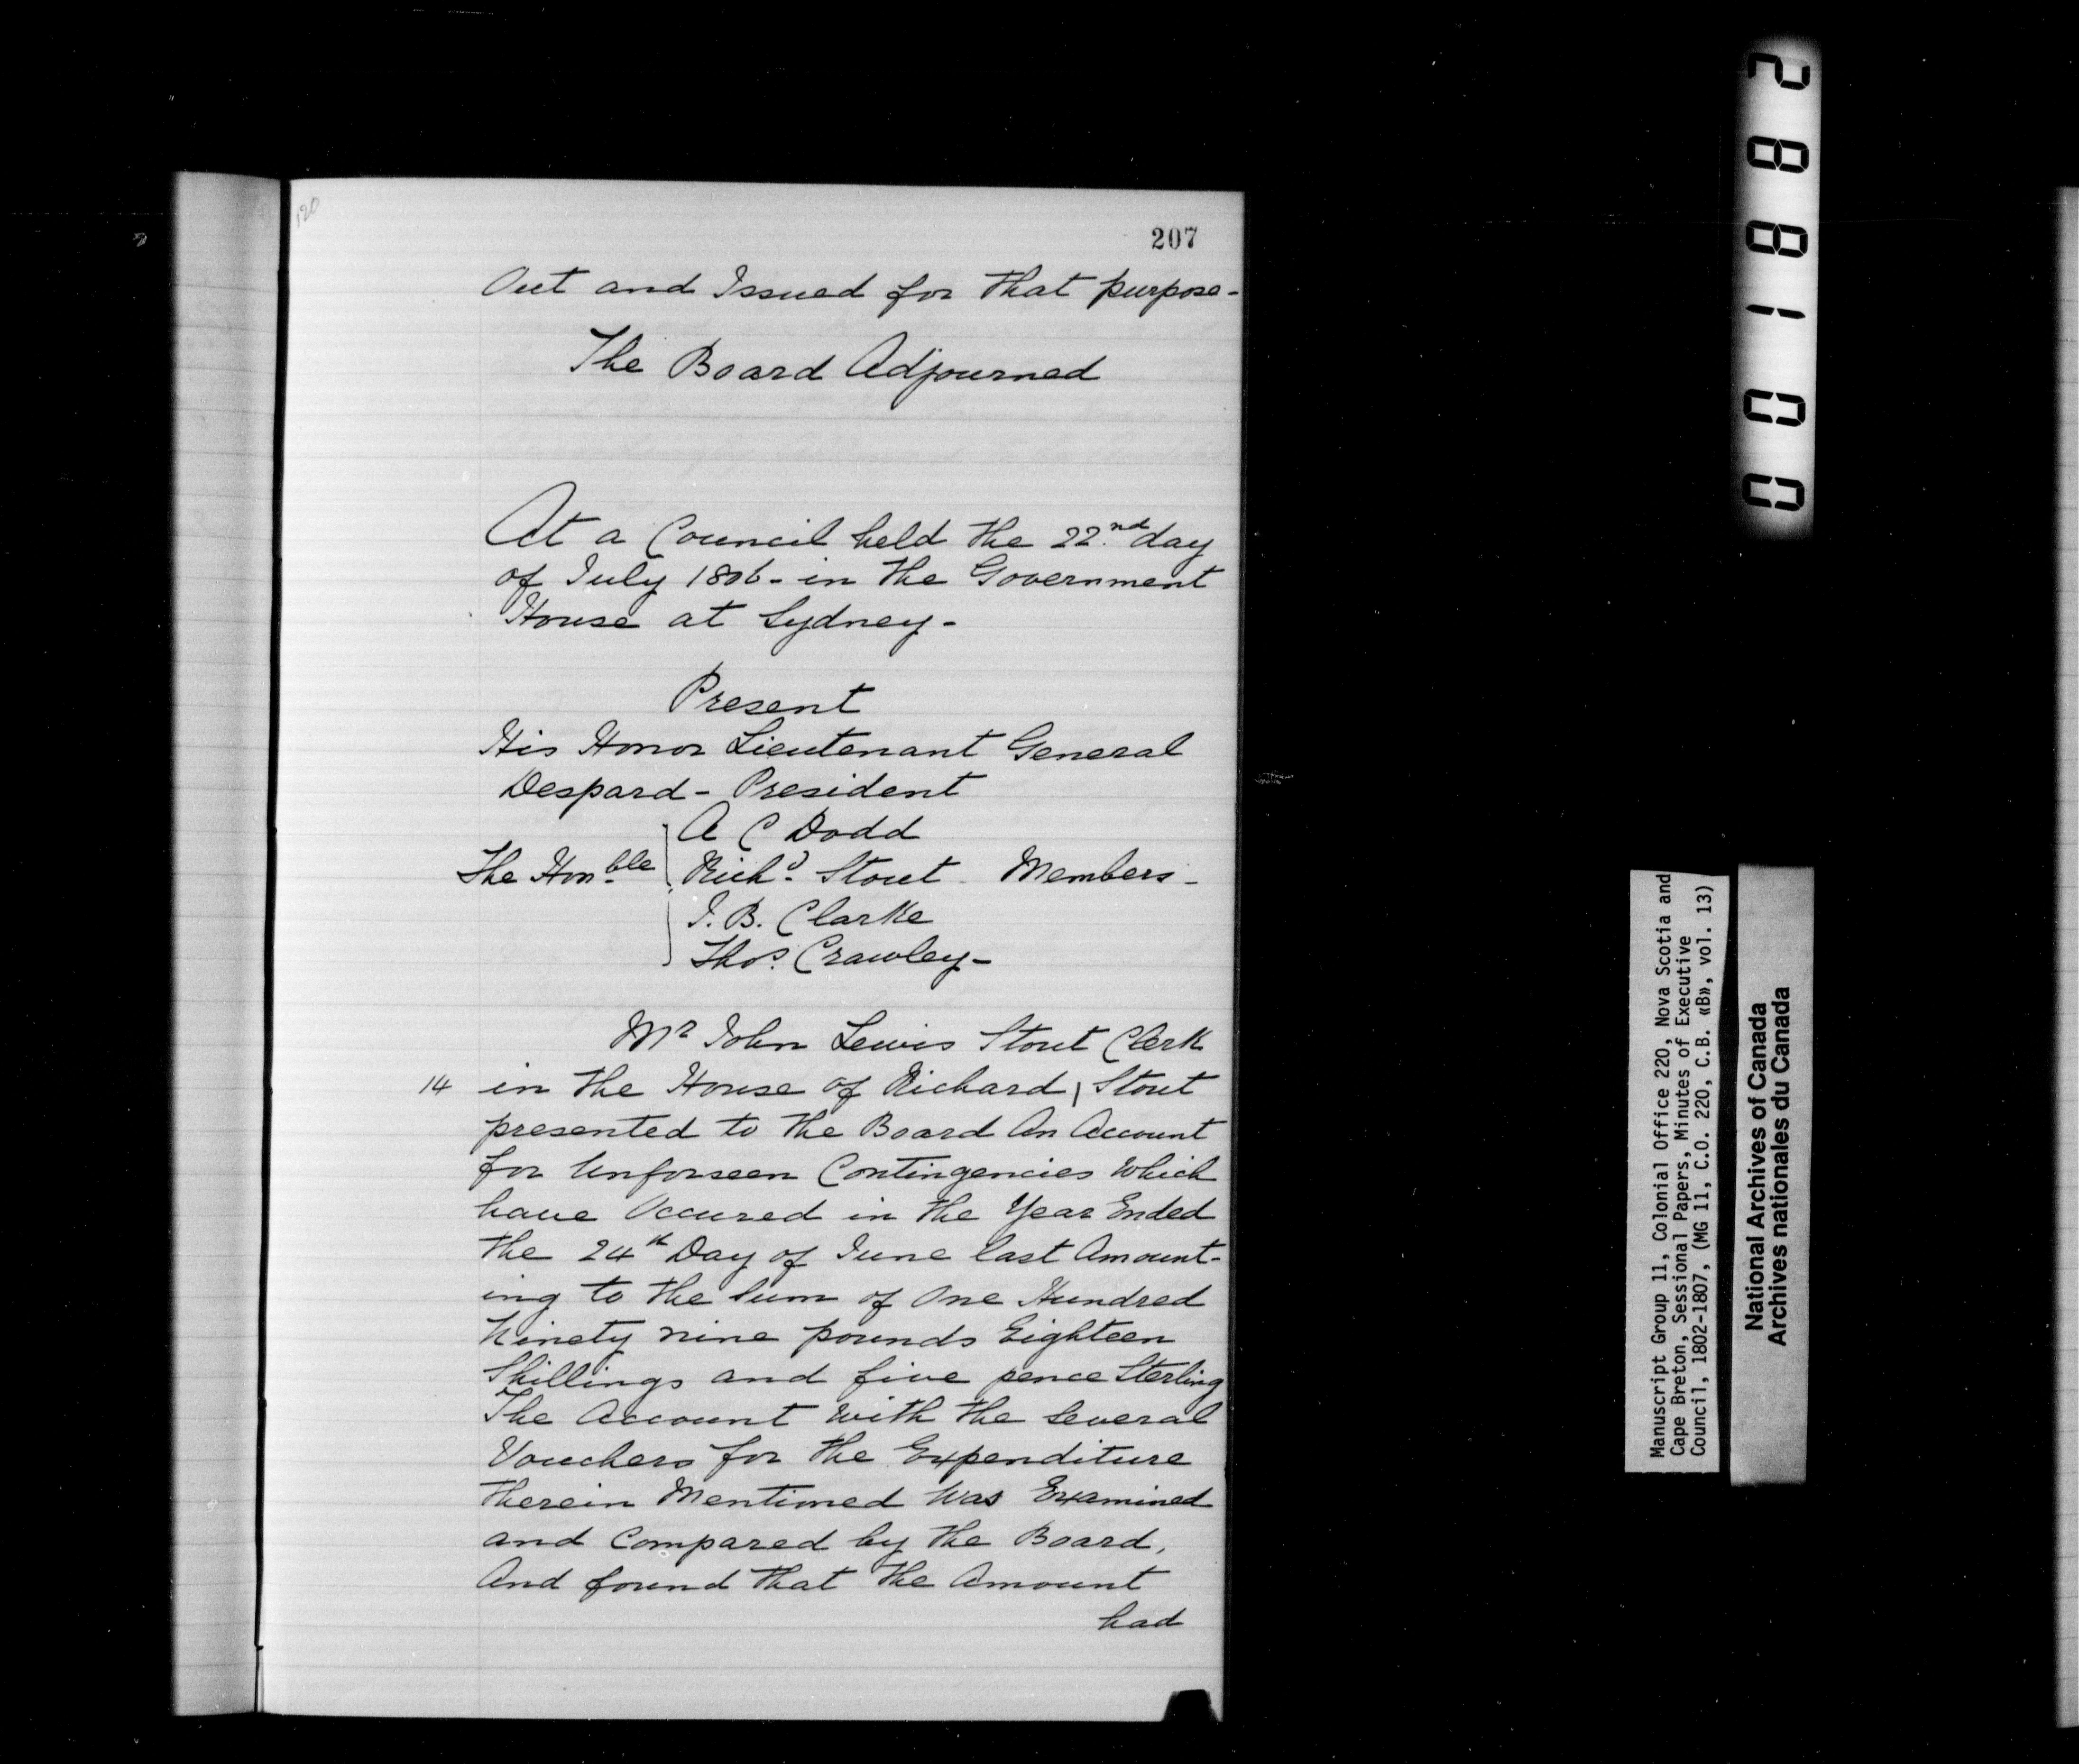 120
207
Out and Issued for that purpose-
The Board Adjourned
At a Council held the 22nd day
of July 1806- in the Government
House at Sydney-
Present
His Honor Lieutenant General
Despard - President
A C Dodd
The Honble Richd Stout - Members-
I. B. Clarke
Thos. Crawley-
Mr John Lewis Stout Clerk
14 in the House of Richard Stout
presented to the Board An Account
for Unforseen Contingencies Which
have Occured in the Year Ended
the 24th Day of June last Amount-
ing to the Sum of One Hundred
Ninety nine pounds Eighteen
Shillings and five pence Sterling
The Account with the Several
Vouchers for the Expenditure
therein Mentioned Was Examined
and Compared by the Board,
And found that the Amount
had
281100
Manuscript Group 11, Colonial Office 220, Nova Scotia and
Cape Breton, Sessional Papers, Minutes of Executive
Council, 1802-1807, (MG 11, C.O. 220, C.B. «B», vol. 13)
National Archives of Canada
Archives nationales du Canada